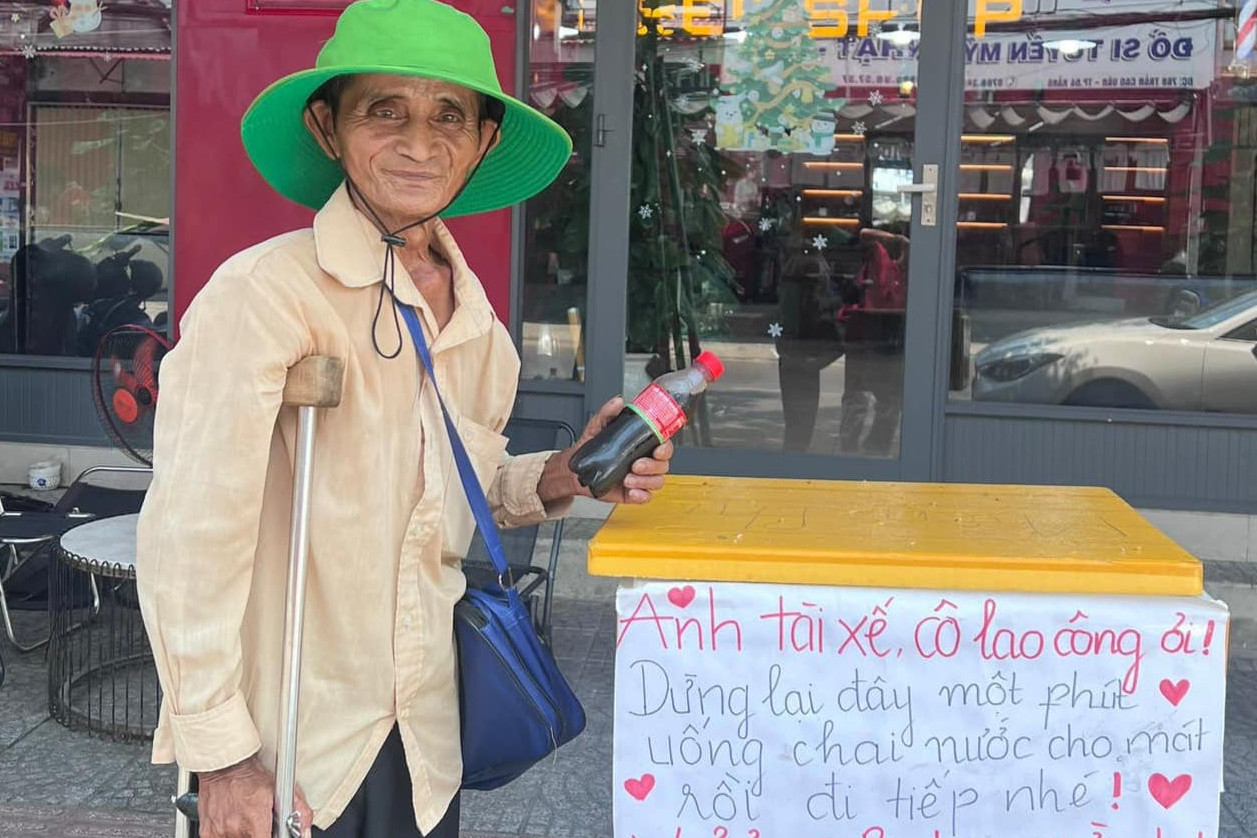 SHOP
ĐỒ SI TUYỂN MỸ - NHẬT
Anh tài xế, cô lao công ơi!
Dừng lại đây một phút
uống chai nước cho mát
rồi đi tiếp nhé!